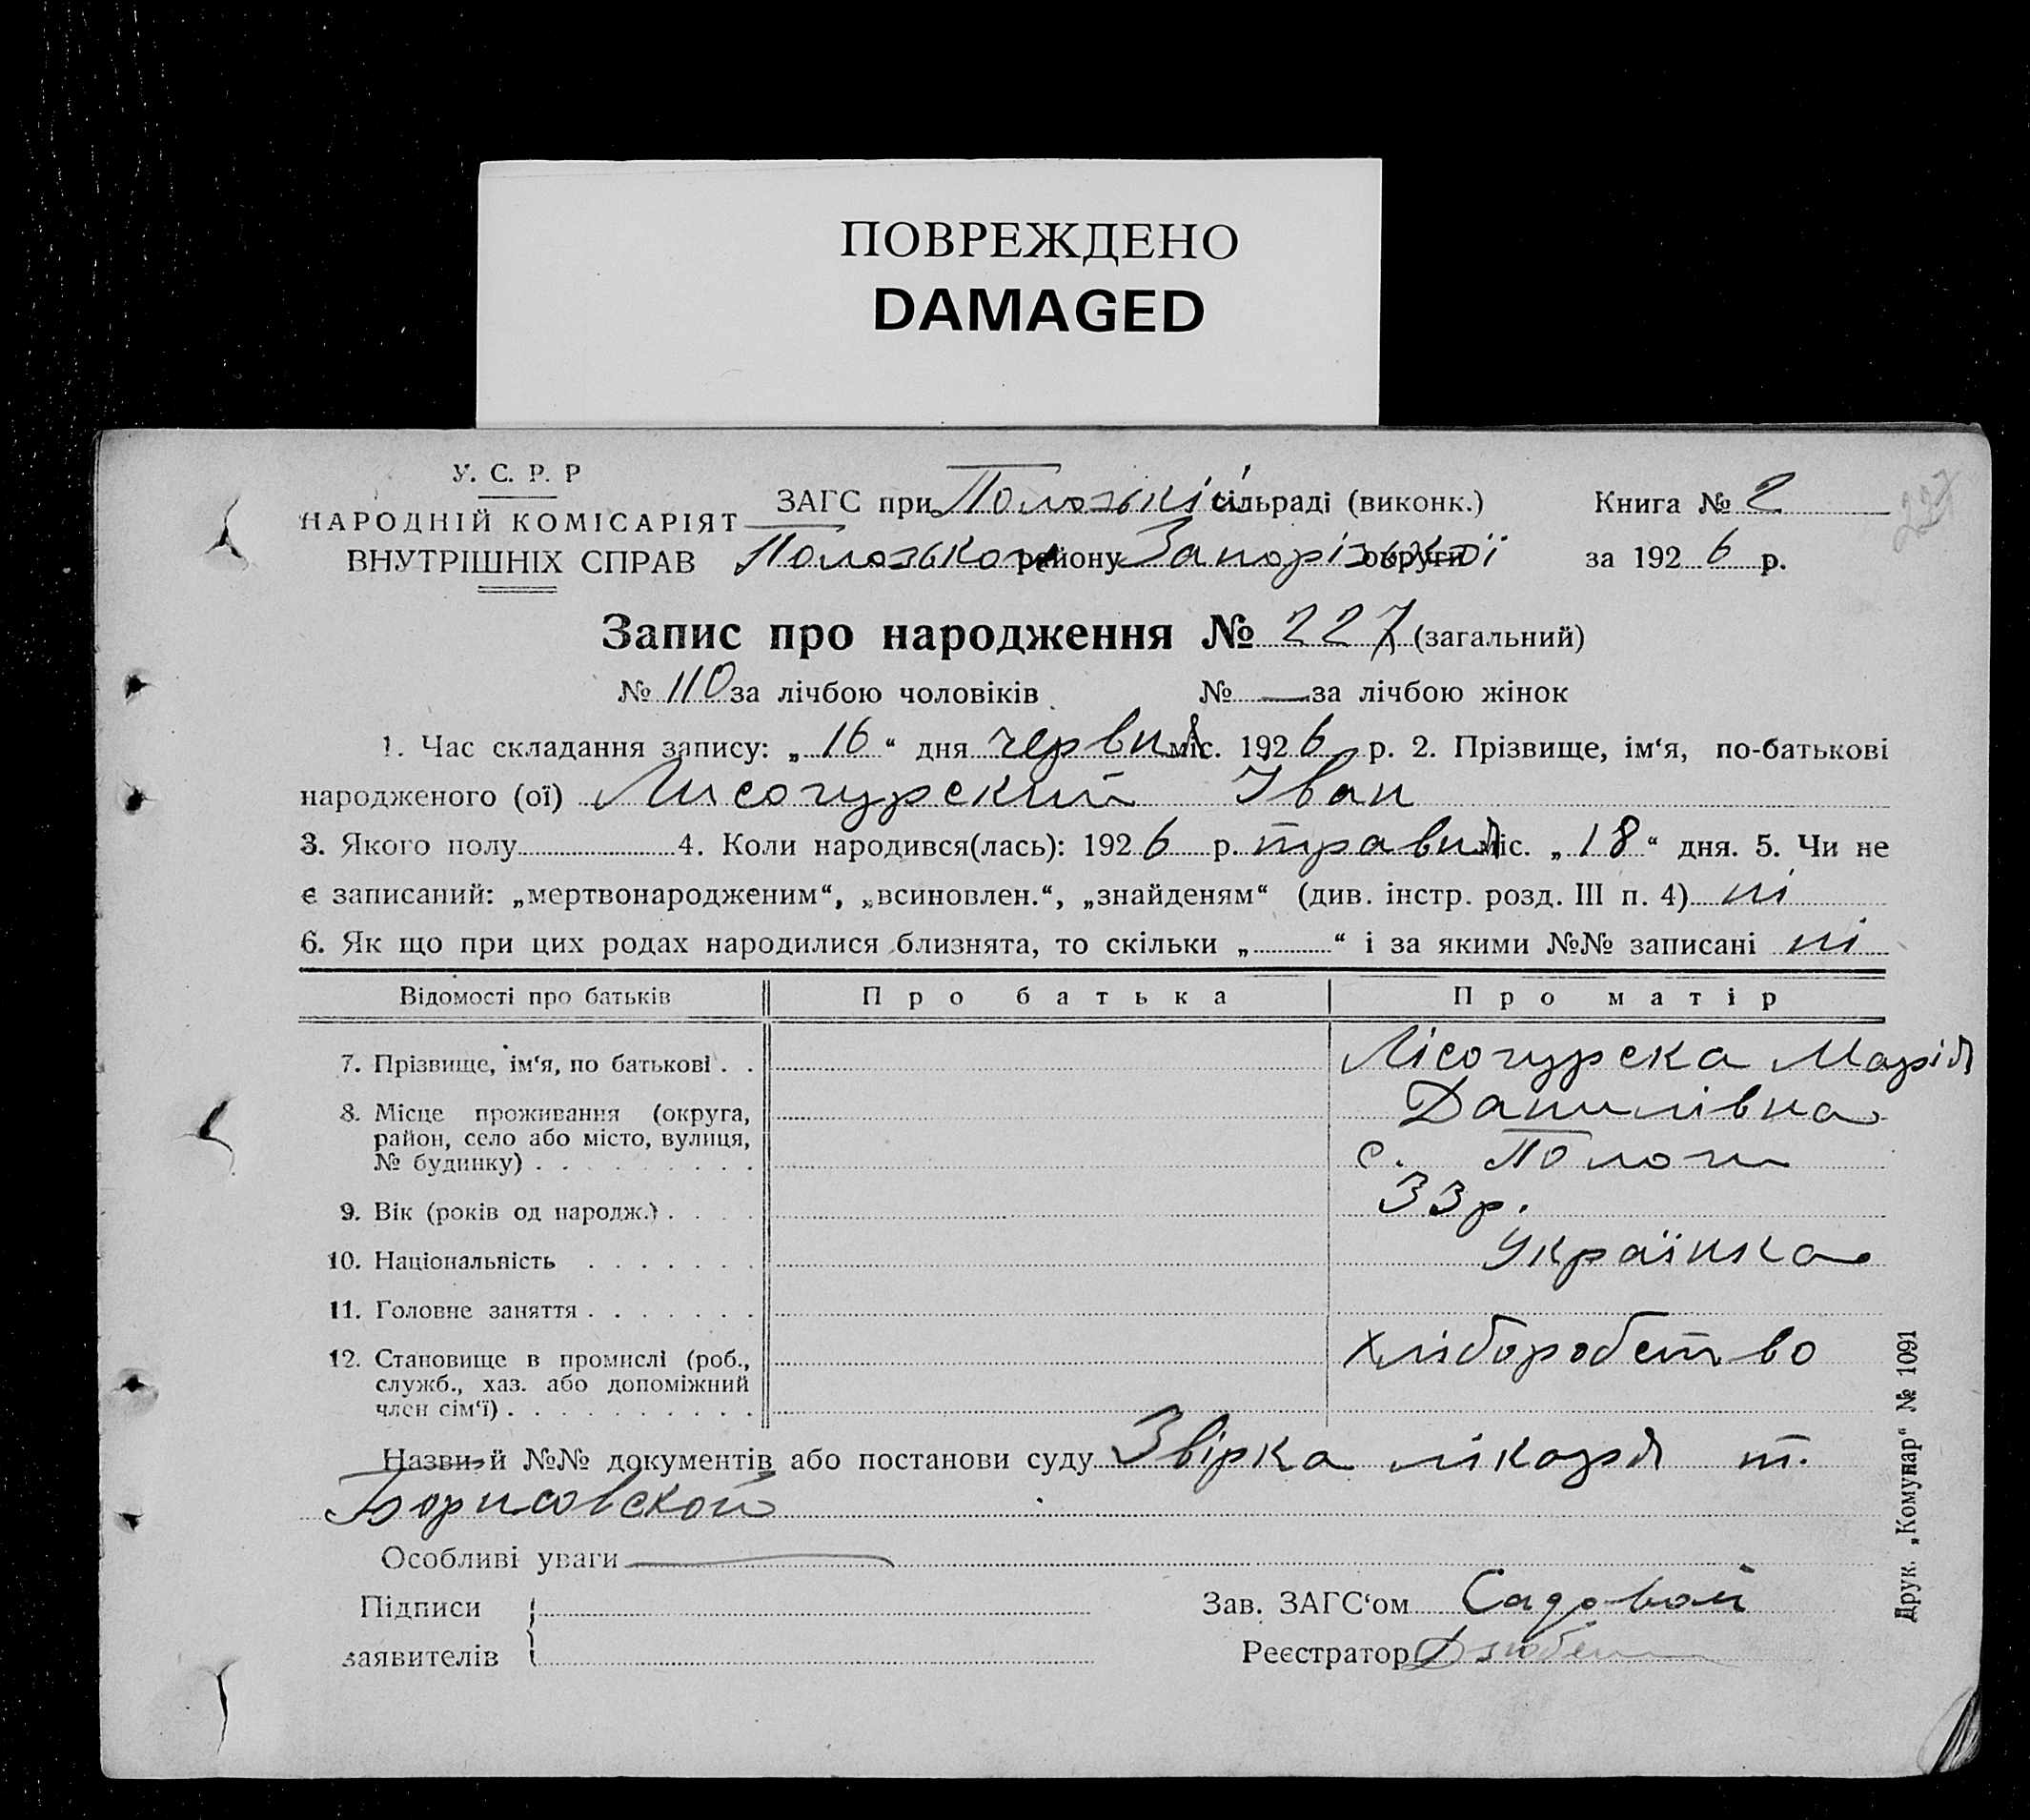 ПОВРЕЖДЕНО
DAMAGED
У. С. Р. Р
НАРОДНІЙ КОМІСАРІЯТ
ВНУТРІШНІХ СПРАВ
ЗАГС при Пологській сільраді (виконк.) Книга № 2
227
району Запорізької округи за 1926 р.
Запис про народження № 227 (загальний)
№ 110 за лічбою чоловіків № — за лічбою жінок
1. Час складання запису: „16“ дня червня міс. 1926 р. 2. Прізвище, ім‘я, по-батькові
народженого (ої) Лисогурский Іван
3. Якого полу 4. Коли народився(лась): 1926 р. травня міс. „18“ дня. 5. Чи не
є записаний: „мертвонародженим“, „всиновлен.“, „знайденям“ (див. інстр. розд. III п. 4) ні
6. Як що при цих родах народилися близнята, то скільки „ “ і за якими №№ записані ні
Відомості про батьків Про батька Про матір
7. Прізвище, ім‘я, по батькові . . Лісогурска Марія
8. Місце проживання (округа, Данилівна
район, село або місто, вулиця,
№ будинку) . . . . . . . . . с. Пологи
9. Вік (років од народж.) . . . . 33 р.
10. Національність . . . . . . . Українка
11. Головне заняття . . . . . . .
12. Становище в промислі (роб., хліборобство
служб., хаз. або допоміжний
член сім‘ї) . . . . . . . . . .
Назви й №№ документів або постанови суду Звірка лікаря т.
Борисовской
Особливі уваги —
Підписи Зав. ЗАГС‘ом Садовой
заявителів Реєстратор
Друк. „Комунар“ № 1091